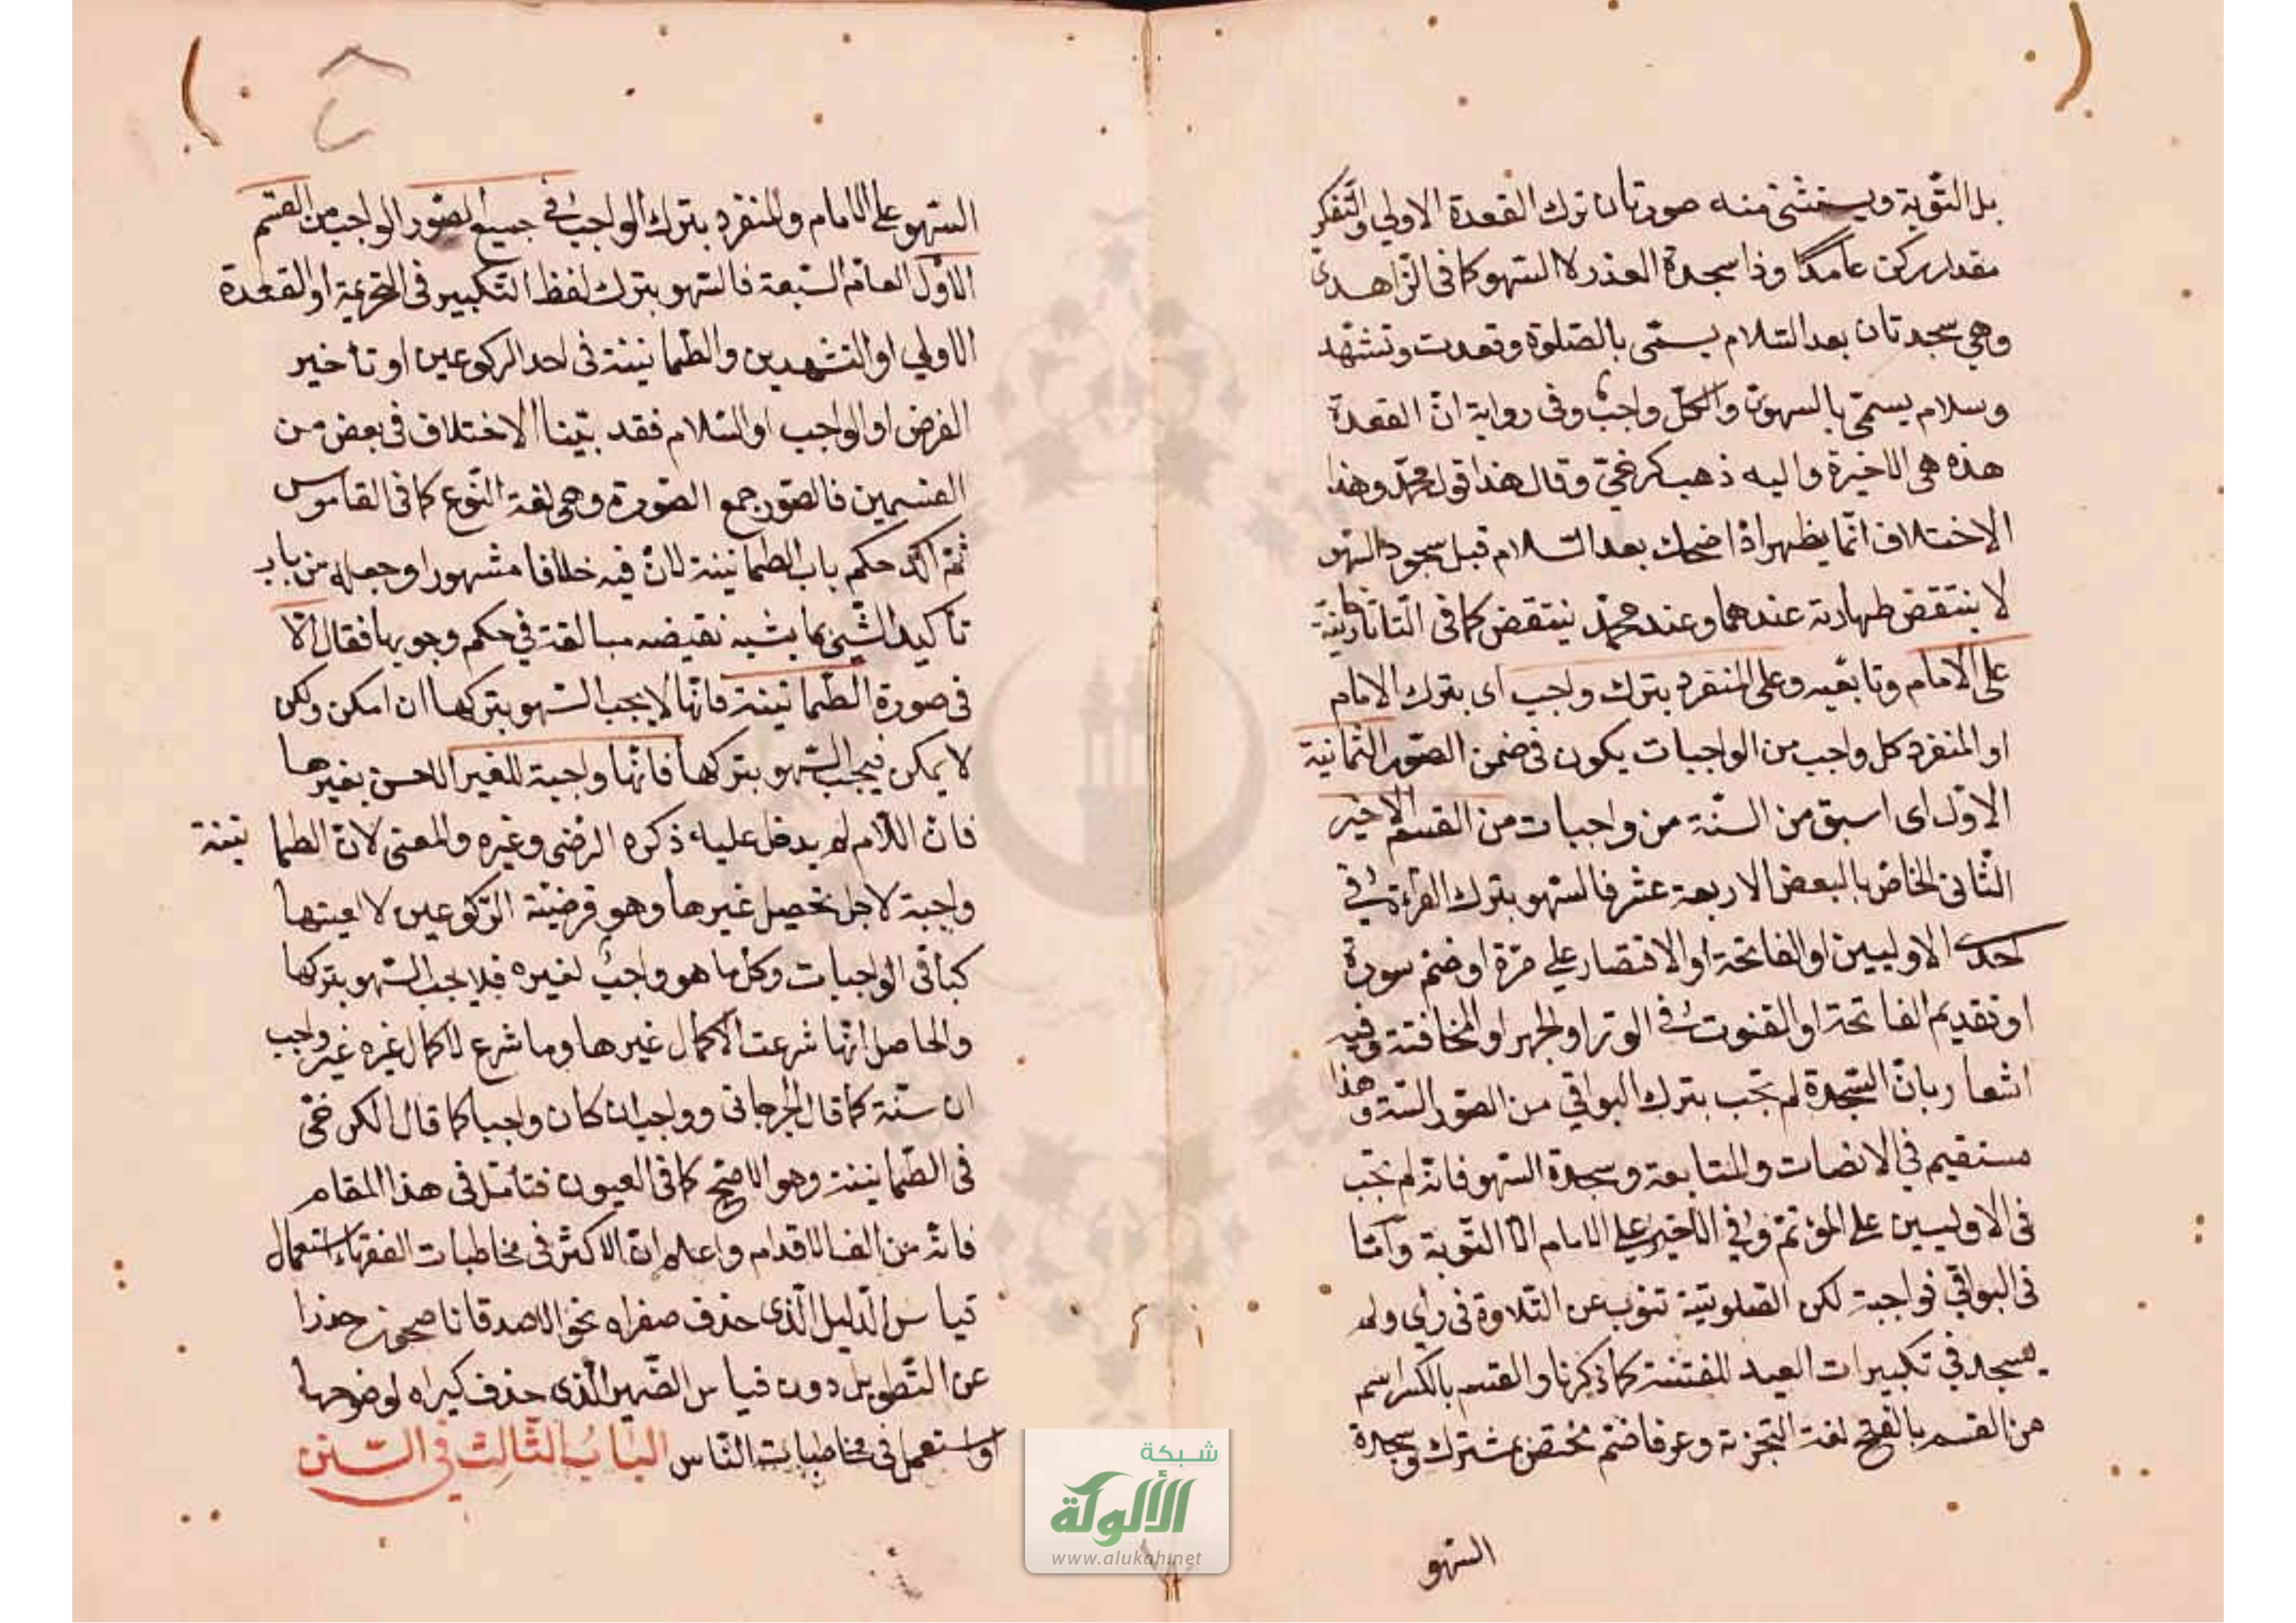 بل التّوبة ويستثنى منه صورتان ترك القعدة الاولى والتّفكر
مقدار ركن عامدًا وذا سجدة العذر لا السّهو كما فى الزّاهدىّ
وهى سجدتان بعد السّلام يسمّى بالصّلوة وقعدت وتشهّد
وسلام يسمّى بالسهوىّ والكلّ واجبٌ وفى رواية انّ القعدة
هذه هى الاخيرة واليه ذهب كرخىّ وقال هذا قول محمّد وهذا
الاختلاف انّما يظهر اذا ضحك بعد السّلام قبل سجود السّهو
لا ينتقض طهارته عندهما وعند محمّد ينتقض كما فى التّاتارخانيّة
على الامام وتابعيه وعلى المنفرد بترك واجب اى بترك الامام
او المنفرد كل واجب من الواجبات يكون فى ضمن الصّور الثّمانية
الاوّل اى اسبق من السنّة من واجبات من القسم الاخير
الثّانى الخاصّ بالبعض الاربعة عشر فالسّهو بترك القراءة فى
احدى الاوليين او الفاتحة او الاقتصار على مرّة او ضمّ سورة
او تقديم الفاتحة او القنوت فى الوتر او الجهر او المخافتة وفيه
اشعار بانّ السّجدة لم تجب بترك البواقي من الصّور الستة وهذا
مستقيم فى الانصات والمتابعة وسجدة السّهو فانّه لم تجب
فى الاوليين على المؤتمّ وفي الاخير على الامام الّا التّوبة وامّا
فى البواقي فواجبة لكن الصّلوتيّة تنوب عن التّلاوة فى رأى ولم
يسجد في تكبيرات العيد للفتنة كما ذكرنا والقسم بالكسر اسم
من القسم بالفتح لغة التجزية وعرفا ضمّ مختصّ بمشترك وسجدة
السّهو
السّهو على الامام والمنفرد بترك الواجب فى جميع الصّور الواجب من القسم
الاوّل العامّ السّبعة فالسّهو بترك لفظ التّكبير فى التحريمة او القعدة
الاولى او التشهدين والطّمانينة فى احد الركوعين او تأخير
الفرض او الواجب او السّلام فقد بيّنا الاختلاف فى بعض من
القسمين فالصّور جمع الصّورة وهى لغة النّوع كما فى القاموس
ثمّ اكّد حكم باب الطمانينة لانّ فيه خلافا مشهورا وجعله من باب
تأكيد الشّئ بما يشبه نقيضه مبالغة في حكم وجوبها فقال الّا
فى صورة الطّمانينة فانّها لا يجب السّهو بتركها ان امكن ولكن
لا يمكن فيجب السّهو بتركها فانّها واجبة للغير الحسن بغيرها
فانّ اللّام لم يدخل عليه ذكره الرضى وغيره والمعنى لانّ الطمانينة
واجبة لاجل تحصيل غيرها وهو فرضيّة الرّكوعين لا لعينها
كباقى الواجبات وكلّ ما هو واجبٌ لغيره فلا يجب السّهو بتركها
والحاصل انّها شرعت لاكمال غيرها وما شرع لاكمال غيره غير واجب
ان سنّة كما قال الجرجانى وواجب ان كان واجبا كما قال الكرخىّ
فى الطّمانينة وهو الاصّح كما فى العيون فتأمّل فى هذا المقام
فانّه من الاقدام واعلم انّ الاكثر فى مخاطبات الفقهاء استعمال
قياس الدّليل الّذى حذف صغراه نحو حذرا
عن التّطويل دون قياس الضّمير الّذى حذف كبراه لوضوحها
او استعمل فى مخاطبات النّاس البابُ الثّالِث فى السّنن
شبكة
الألوكة
www.alukah.net